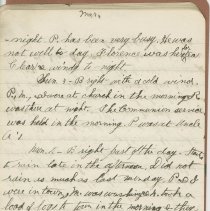 Mar.
-night P. has been very busy. He was
not well to day. Florence was here
Clear & windy to night
Sun. 3 - Bright with a cold wind
P. M. & I were at church in the morning P.
was there at night. The Communion service
was held in the morning P. was at Uncle
A's.
Mon. 4 - Bright best of the day - Started
to rain late in the afternoon. Did not
rain as much as last Monday. P. & I
were in town, M. was washing & took a
load of logs to town in the morning &